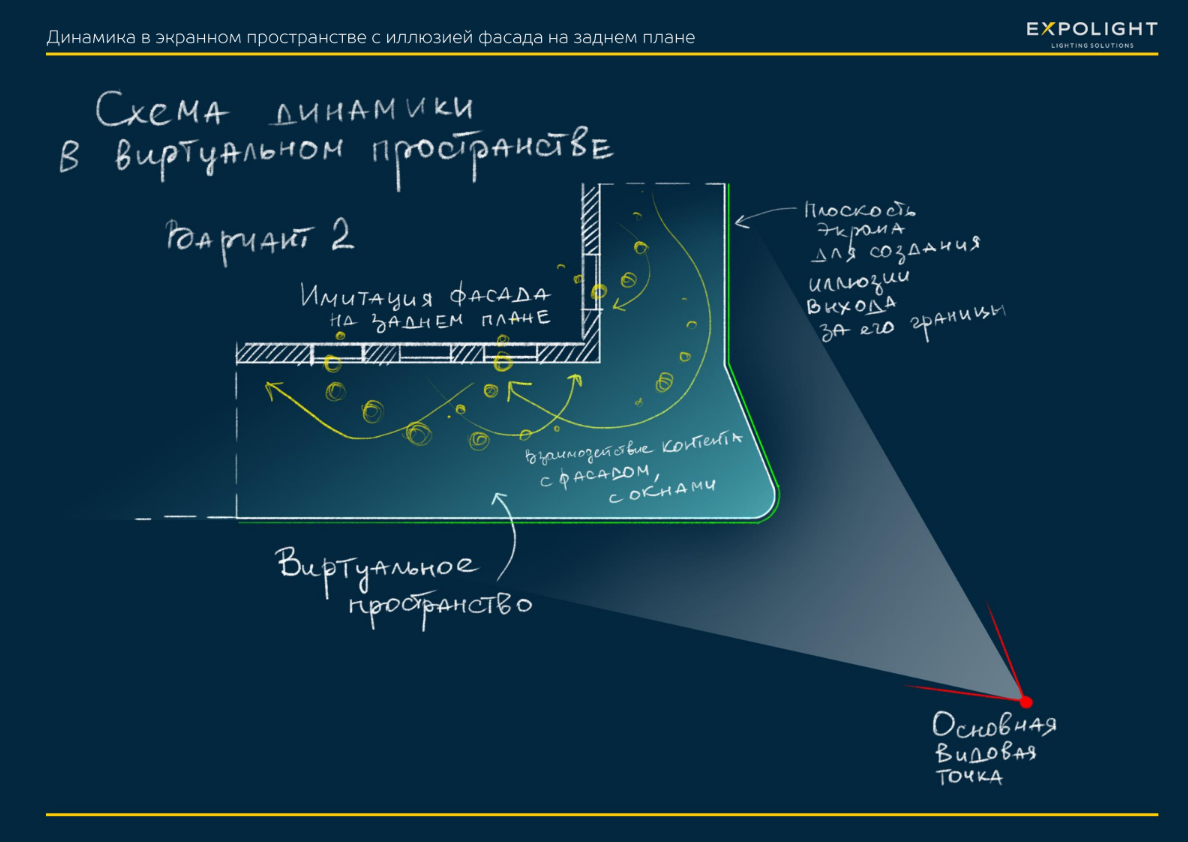 Динамика в экранном пространстве с иллюзией фасада на заднем плане
EXPOLIGHT
LIGHTING SOLUTIONS
Схема динамики
в виртуальном пространстве
Вариант 2
Имитация фасада
на заднем плане
Плоскость
экрома
для создания
иллюзии
выхода
за его границы
Взаимодействие контента
с фасадом,
с окнами
Виртуальное
пространство
Основная
видовая
точка